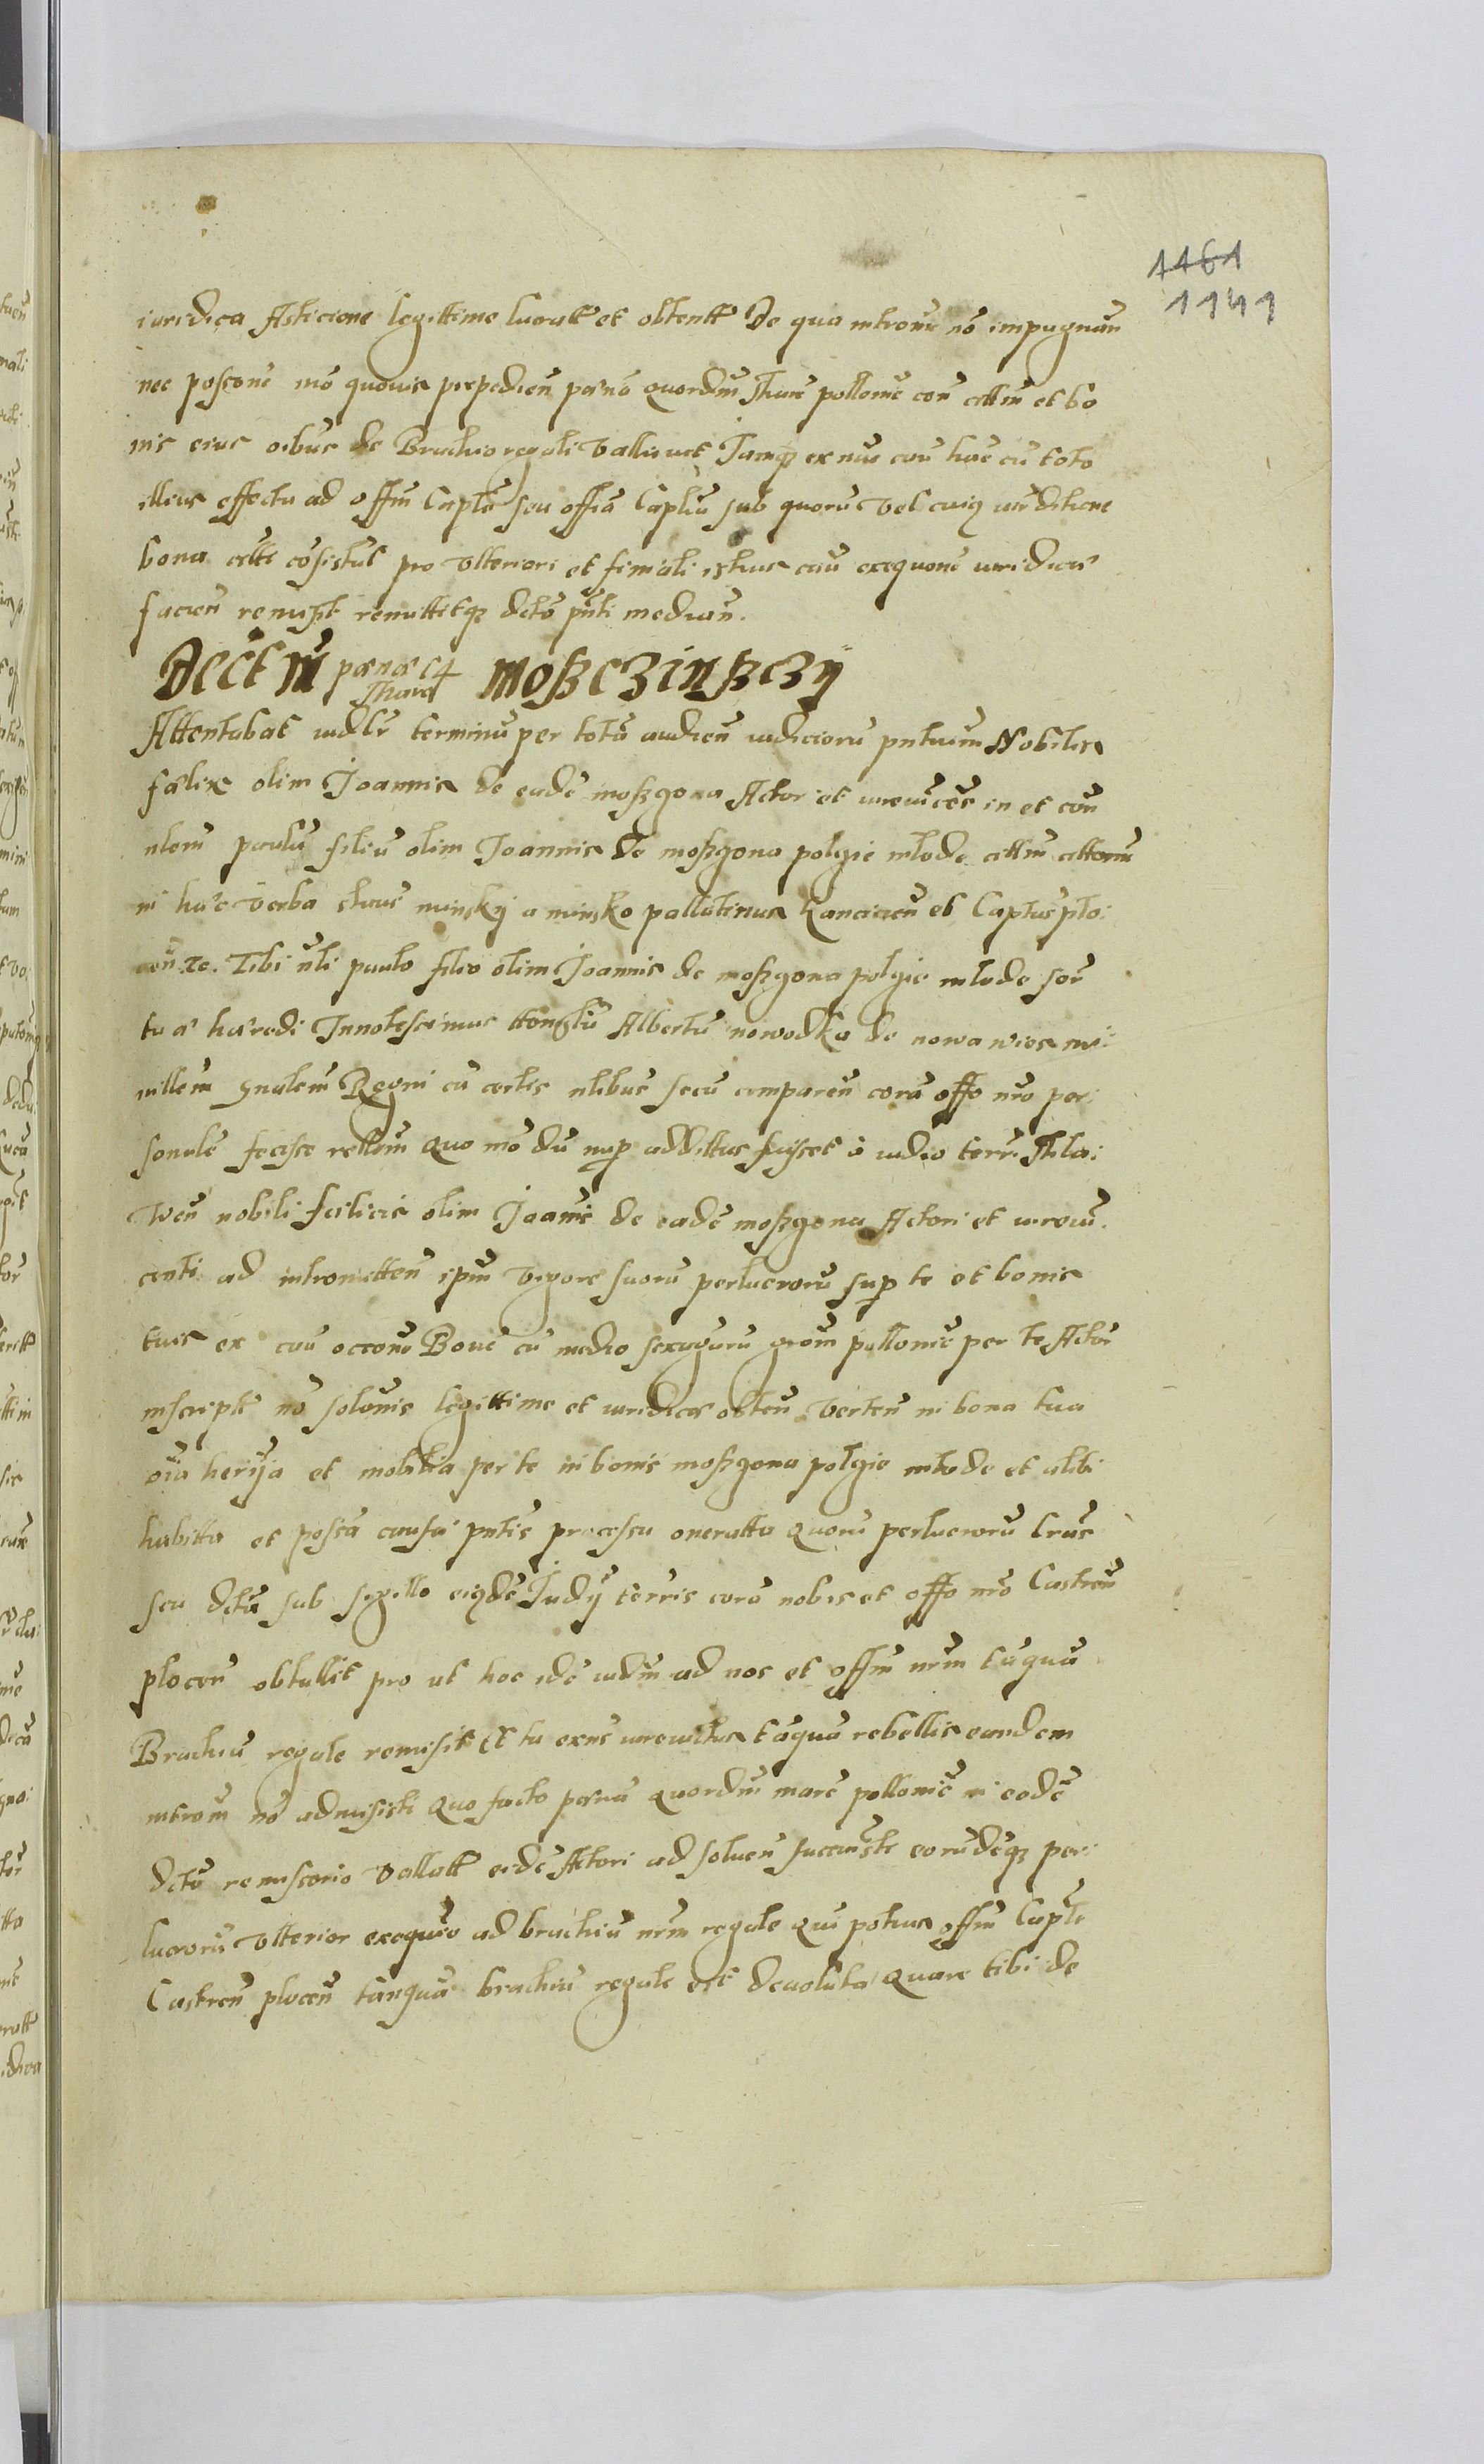 1461
1141
iuridica Asticione legittime lucratt et obtentt De qua introm̄ nō impugnan̄
nec poscone mō quovis prepedien̄ pœna quordm̄ Marc pollonic con̄ cittm̄ et bo
nis eius oibus de Brachio regali valluit Jamq3 ex nūc cau hāc cū toto
illius effectu ad offm̄ Captū seu offia Captiū sub quorū vel cuiq iurditione
bona citti cōsistūt pro vlteriori et finali istius cau exequone iuridica
facien̄ remisit remittitq3 dctō pn̄ti median̄.
Decrm̄ pœnæ 14 Marc moszczinsczÿ
Attentabat iudlr̄ terminū per totū audien̄ iudiciorū pntium Nobilis
fœlix olim Joannis de eadē moszgona Actor et iurevicēs in et con̄
nlem̄ paulū filiū olim Joannis de moszgona polgie mlode cittm̄ cittonem
in hæc verba sturs minskÿ a minsko pallatinus Lancicien̄ et Captus plo:
cen̄ 2c. Tibi n̄li paulo filio olim Joannis de moszgona polgie mlode sor
tis hæredi Innotescimus Albertū nowodka de nowa wies mi:
nillem̄ gnalem̄ Regni cū certis nlibus secū comparen̄ corā offo nr̄o per:
sonalē fecisse rellom̄ quo mō dū nup addittus fuisset ō iudio terr̄ Mla:
wen̄ nobili fœlicis olim Joanis de eadē moszgona Actori et iurevin:
centi ad intromitten̄ ipm̄ vigore suorū perlucrorū sup te et bonis
tuis ex cau occone Bovē cū medio sexagarū grom̄ pollonic per te Actori
inscripti nō soluonis legittime et iuridicæ obten̄ verten̄ in bona tua
oīa herÿa et mobilia per te in bonis moszgona polgie mlode et alibi
habitta et postā causæ pn̄tis processu oneratta quorū perlucrorū Lras
seu dctū sub sigillo eiqdē Judÿ terris corā nobis et offo nr̄o Castren̄
plocen̄ obtullit pro ut hoc idē iudm̄ ad nos et offm̄ nrm̄ tāquā
Brachiū regale remisit Et tu exns iurevictus tāquā rebellis eandem
introm̄ nō admisisti quo facto pœna quordm̄ marc pollonic in eodē
dcto remissorio vallatt eidē Actori ad soluen̄ succūsti eorūdēq3 per:
lucrorū vlterior exequūo ad brachiū nrm̄ regale qui potius offm̄ Capte
Castren̄ plocen̄ tanquā brachiū regale est devoluta Quare tibi de